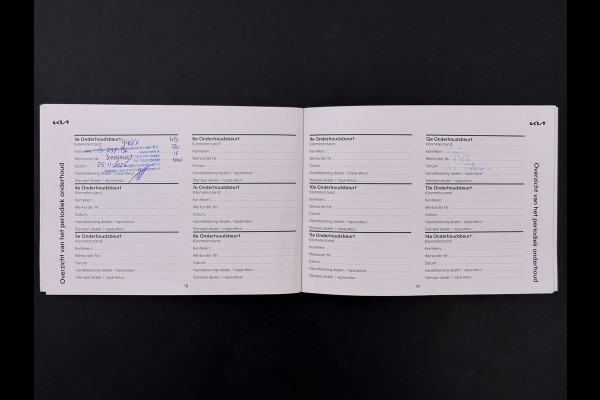 KIA
Overzicht van het periodiek onderhoud
3e Onderhoudsbeurt
Kilometerstand:
Kenteken:
Werkorder Nr.:
Datum: 25-11-2025
Handtekening dealer / reparateur:
Stempel dealer / reparateur:
4e Onderhoudsbeurt
Kilometerstand:
Kenteken:
Werkorder Nr.:
Datum:
Handtekening dealer / reparateur:
Stempel dealer / reparateur:
5e Onderhoudsbeurt
Kilometerstand:
Kenteken:
Werkorder Nr.:
Datum:
Handtekening dealer / reparateur:
Stempel dealer / reparateur:
6e Onderhoudsbeurt
Kilometerstand:
Kenteken:
Werkorder Nr.:
Datum:
Handtekening dealer / reparateur:
Stempel dealer / reparateur:
7e Onderhoudsbeurt
Kilometerstand:
Kenteken:
Werkorder Nr.:
Datum:
Handtekening dealer / reparateur:
Stempel dealer / reparateur:
8e Onderhoudsbeurt
Kilometerstand:
Kenteken:
Werkorder Nr.:
Datum:
Handtekening dealer / reparateur:
Stempel dealer / reparateur:
KIA
9e Onderhoudsbeurt
Kilometerstand:
Kenteken:
Werkorder Nr.:
Datum:
Handtekening dealer / reparateur:
Stempel dealer / reparateur:
10e Onderhoudsbeurt
Kilometerstand:
Kenteken:
Werkorder Nr.:
Datum:
Handtekening dealer / reparateur:
Stempel dealer / reparateur:
11e Onderhoudsbeurt
Kilometerstand:
Kenteken:
Werkorder Nr.:
Datum:
Handtekening dealer / reparateur:
Stempel dealer / reparateur:
12e Onderhoudsbeurt
Kilometerstand:
Kenteken:
Werkorder Nr.:
Datum:
Handtekening dealer / reparateur:
Stempel dealer / reparateur:
13e Onderhoudsbeurt
Kilometerstand:
Kenteken:
Werkorder Nr.:
Datum:
Handtekening dealer / reparateur:
Stempel dealer / reparateur:
14e Onderhoudsbeurt
Kilometerstand:
Kenteken:
Werkorder Nr.:
Datum:
Handtekening dealer / reparateur:
Stempel dealer / reparateur:
Overzicht van het periodiek onderhoud